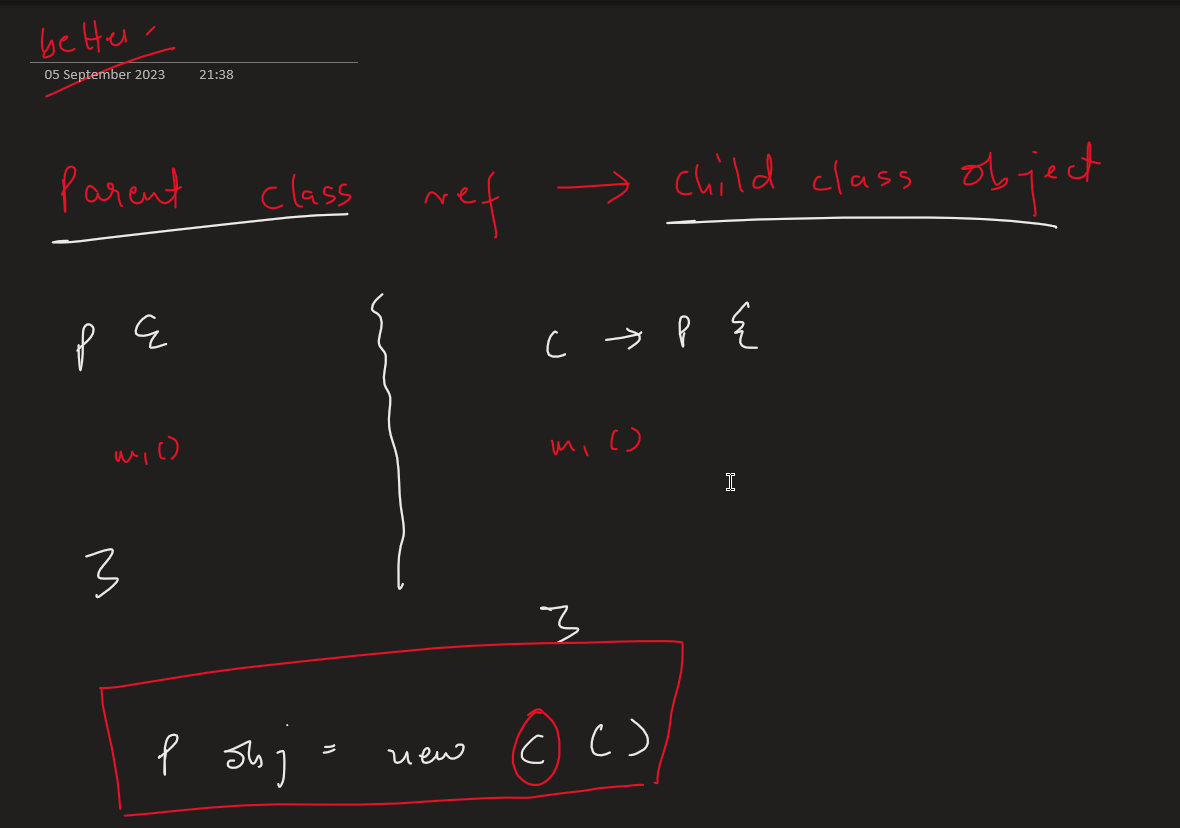 better
05 September 2023 21:38
Parent class ref → child class object
P {
C → P {
m1()
m1()
}
}
P obj = new C ()